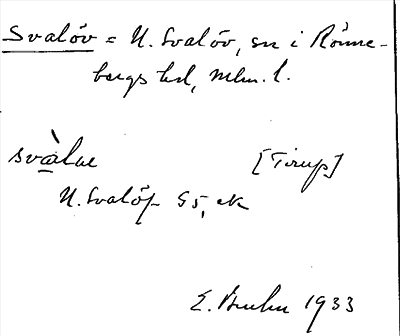 Svalöv = N. Svalöv, sn i Rönne-
bergs hd, Mlm. l.
svàlue [Tirup]
N. Svalöf s 5, ek
E. Bruhn 1933